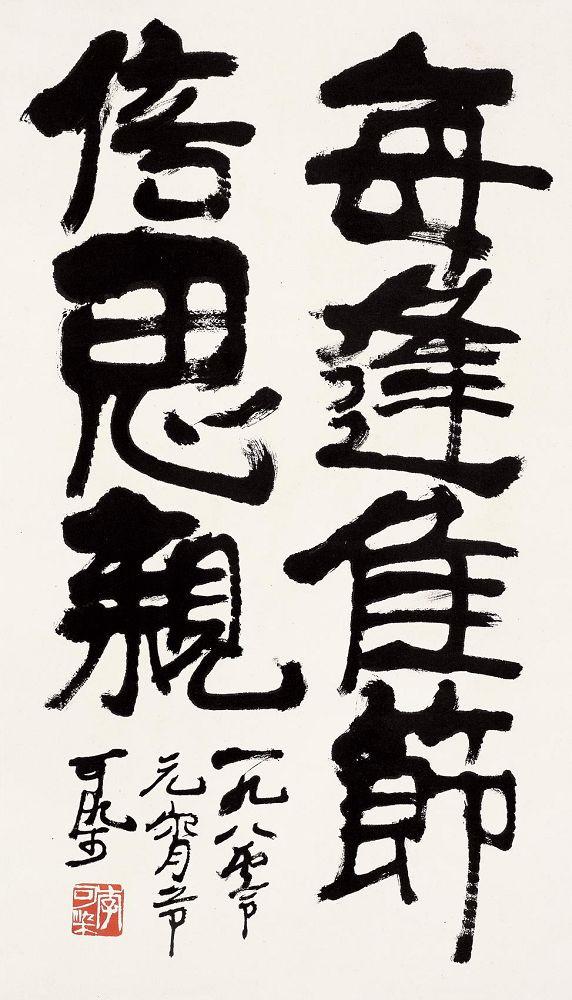 每逢佳節
倍思親
一九八零年
元宵节
可染
李可染